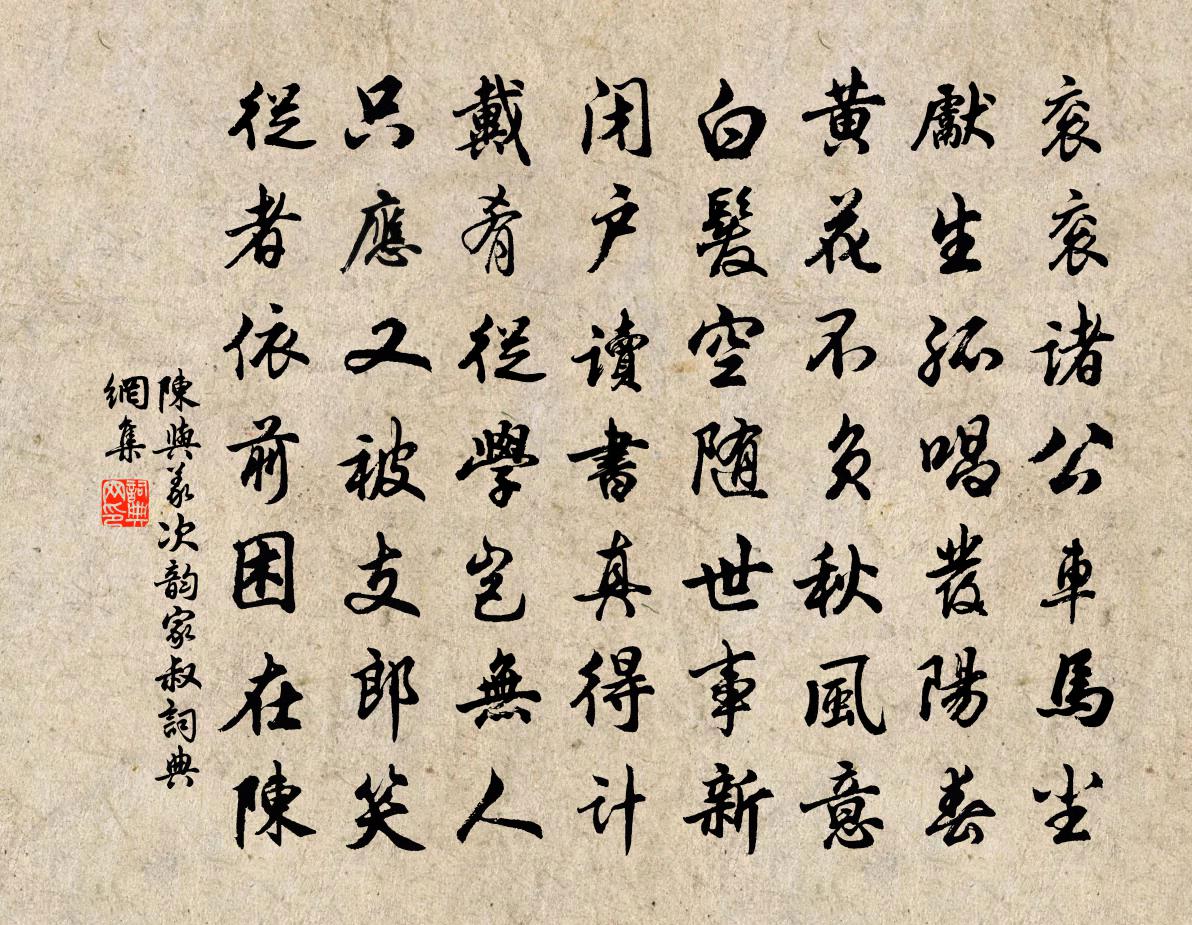 衮衮諸公車馬尘
獻生孤唱發陽春
黄花不负秋風意
白髮空随世事新
閉户讀書真得计
戴肴從學岂無人
只應又被支郎笑
從者依前困在陳
陳與義次韵家叔詞典
網集
詞典
网印